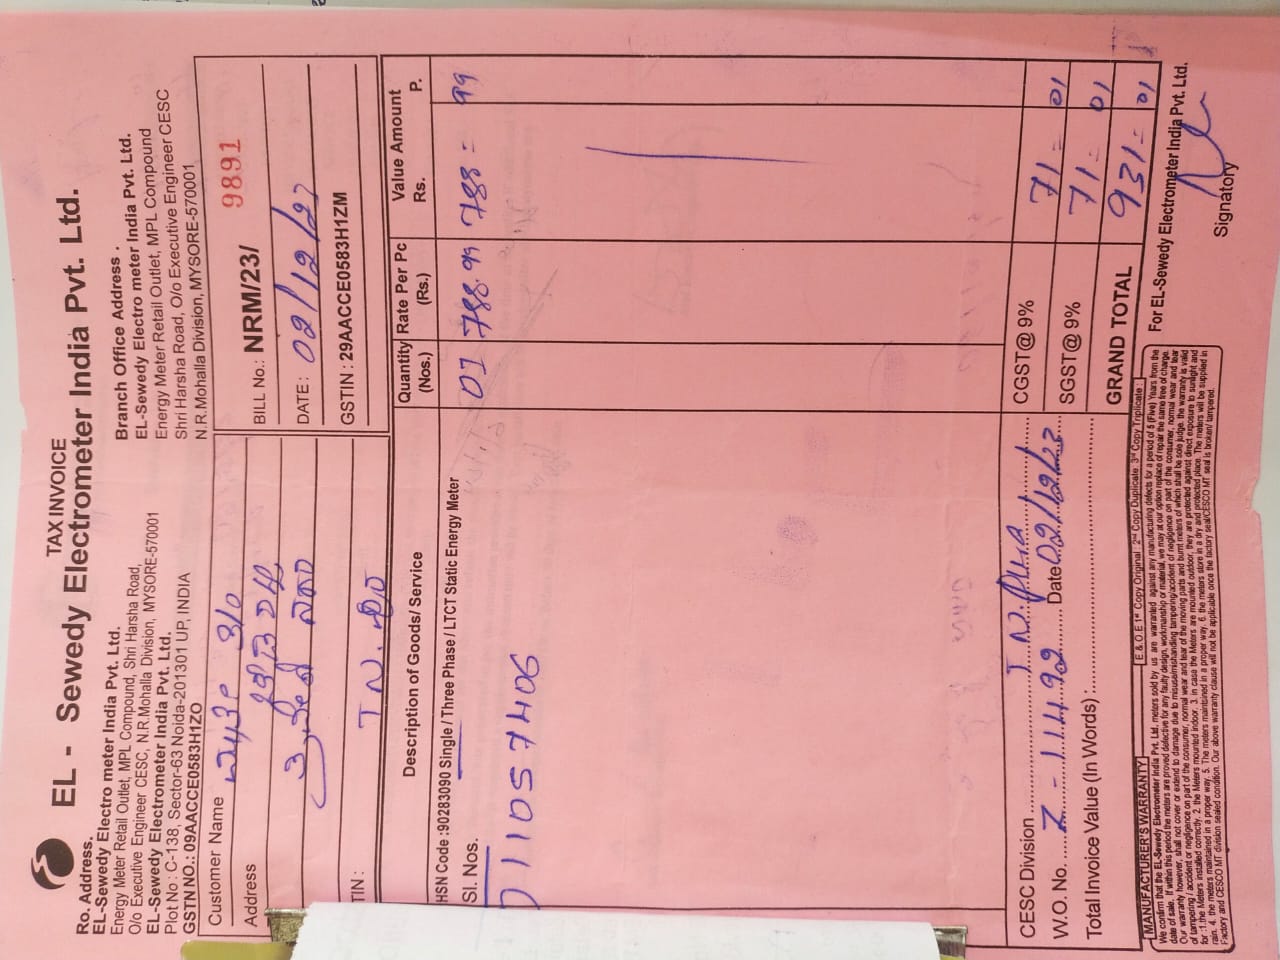 TAX INVOICE
EL - Sewedy Electrometer India Pvt. Ltd.
Ro. Address.
EL-Sewedy Electro meter India Pvt. Ltd.
Energy Meter Retail Outlet, MPL Compound, Shri Harsha Road,
O/o Executive Engineer CESC, N.R.Mohalla Division, MYSORE-570001
EL-Sewedy Electrometer India Pvt. Ltd.
Plot No : C-138, Sector-63 Noida-201301 UP, INDIA
GSTN NO.: 09AACCE0583H1ZO
Branch Office Address .
EL-Sewedy Electro meter India Pvt. Ltd.
Energy Meter Retail Outlet, MPL Compound
Shri Harsha Road, O/o Executive Engineer CESC
N.R.Mohalla Division, MYSORE-570001
Customer Name
Address
TIN :
T N.
BILL No.: NRM/23/ 9891
DATE : 02/12/23
GSTIN : 29AACCE0583H1ZM
Description of Goods/ Service
Quantity (Nos.)
Rate Per Pc (Rs.)
Value Amount
Rs. P.
HSN Code :90283090 Single / Three Phase / LTCT Static Energy Meter
Sl. Nos.
01 788.99 788 = 99
11057406
CESC Division T. N. Pura
W.O. No. Z - 111492 Date 02/12/23
Total Invoice Value (In Words):
CGST@ 9% 71 = 01
SGST@ 9% 71 = 01
GRAND TOTAL 931 = 01
E & O.E 1st Copy Original : 2nd Copy Duplicate : 3rd Copy Triplicate :
MANUFACTURER'S WARRANTY
We confirm that the EL-Sewedy Electrometer India Pvt. Ltd, meters sold by us are warranted against any manufacturing defects for a period of 5 (Five) Years from the
date of sale. If within this period the meters are proved defective for any faulty design, workmanship or material, we may at our option replace of repair the same free of charge.
Our warranty however, shall not cover or extend to damage due to misuse/mishandling tampering/accident of negligence on part of the consumer, normal wear and tear
of tampering / accident or negligence on part of the consumer, normal wear and tear of the moving parts and burnt meters of which shall be sole judge. the warranty is valid
for :1.the Meters installed correctly. 2. the Meters mounted indoor. 3. in case the Meters are mounted outdoor, they are protected against direct exposure to sunlight and
rain. 4. the meters maintained in a proper way. 5. The meters maintained in a proper way. 6. the meters store in a dry and protected place. The meters will be supplied in
Factory and CESCO MT division sealed condition. Our above warranty clause will not be applicable once the factory seal/CESCO MT seal is broken/ tampered.
For EL-Sewedy Electrometer India Pvt. Ltd.
Signatory